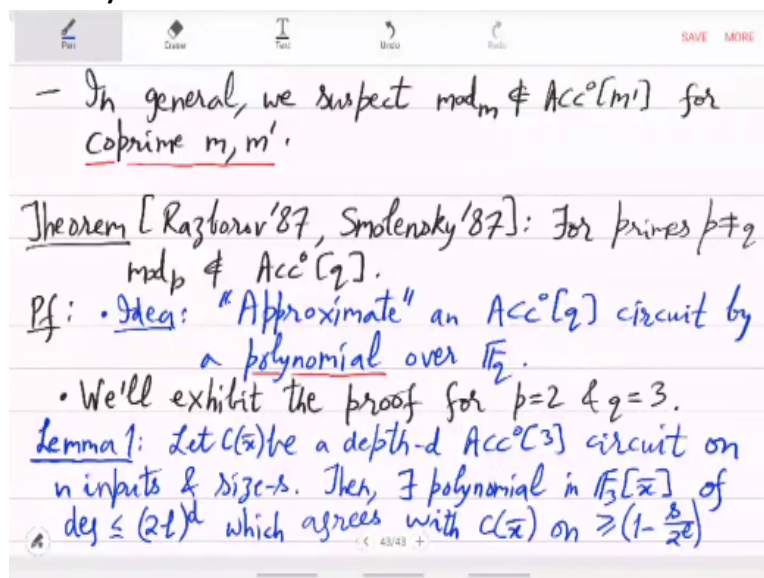 Pen Eraser Text Undo Redo SAVE MORE
- In general, we suspect mod_m ∉ Acc⁰[m'] for
coprime m, m'.
Theorem [Razborov'87, Smolensky'87]: For primes p≠q
mod_p ∉ Acc⁰[q].
Pf: • Idea: "Approximate" an Acc⁰[q] circuit by
a polynomial over 𝔽_q.
• We'll exhibit the proof for p=2 & q=3.
Lemma 1: Let C(x̄) be a depth-d Acc⁰[3] circuit on
n inputs & size-s. Then, ∃ polynomial in 𝔽₃[x̄] of
deg ≤ (2ℓ)^d which agrees with C(x̄) on ≥ (1 - s/2^ℓ)
< 43/43 +